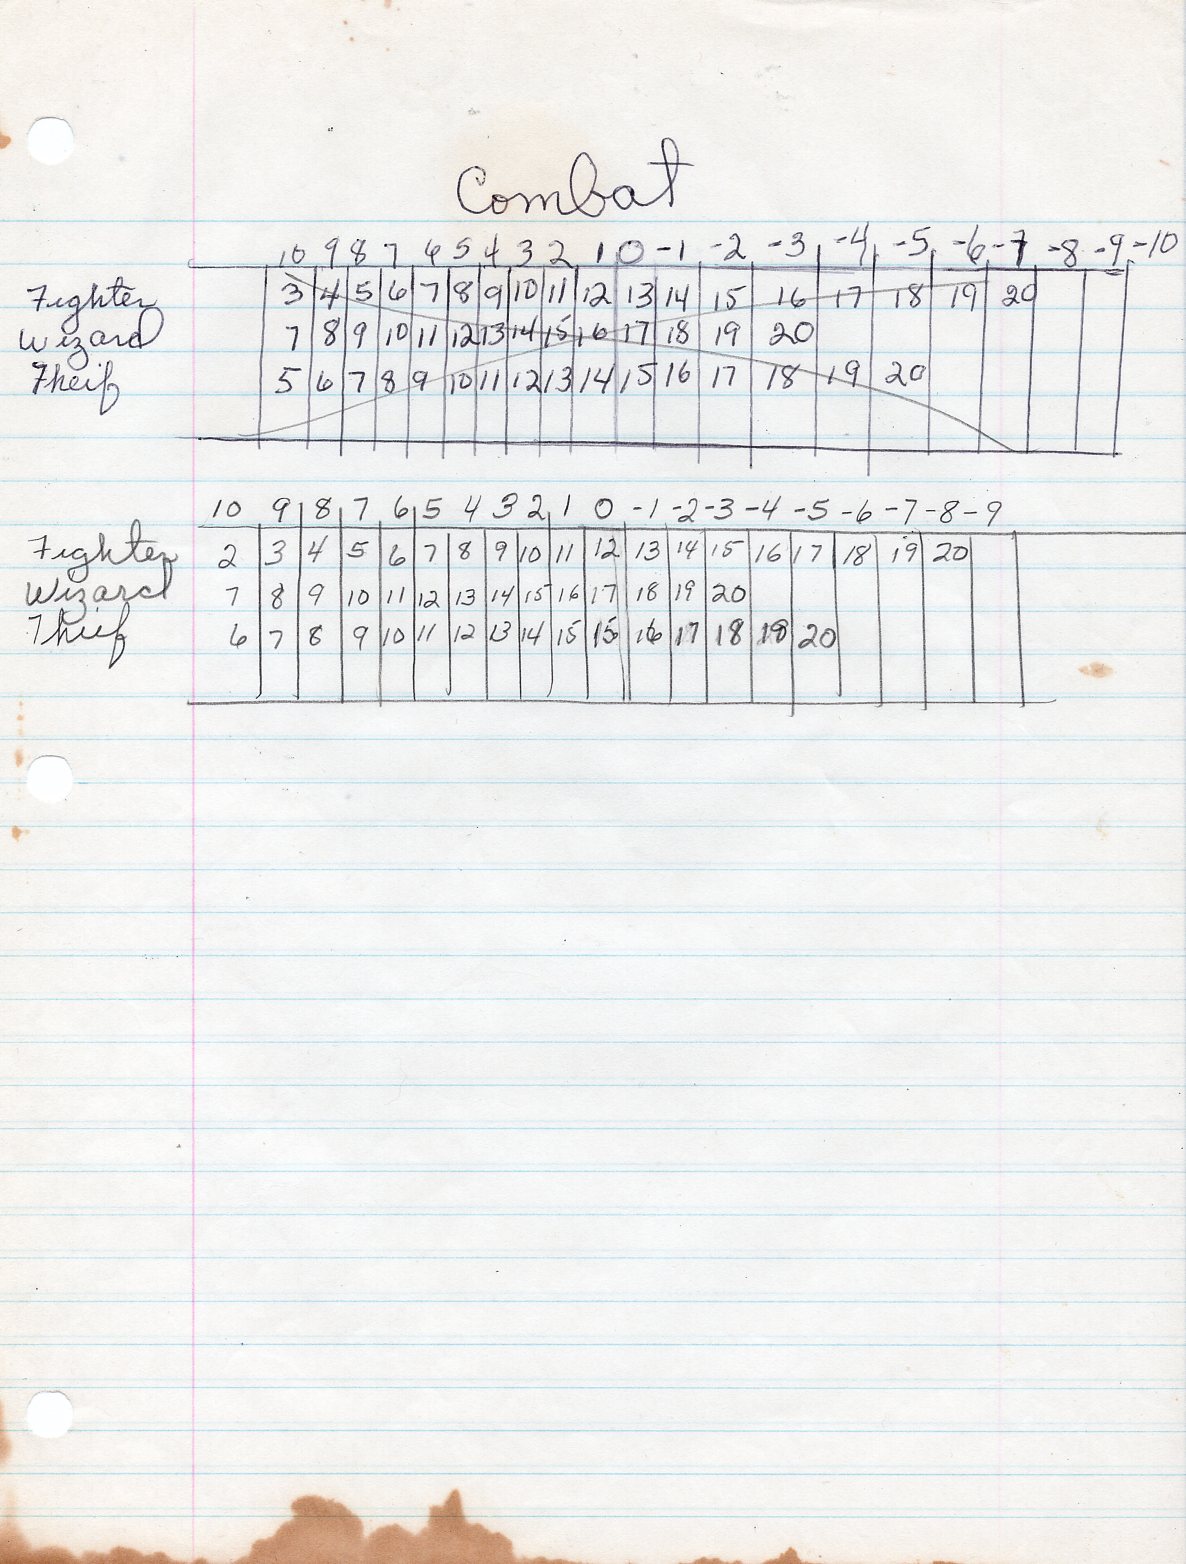 Combat
10 9 8 7 6 5 4 3 2 1 0 -1 -2 -3 -4 -5 -6 -7 -8 -9 -10
Fighter 3 4 5 6 7 8 9 10 11 12 13 14 15 16 17 18 19 20
Wizard 7 8 9 10 11 12 13 14 15 16 17 18 19 20
Theif 5 6 7 8 9 10 11 12 13 14 15 16 17 18 19 20
10 9 8 7 6 5 4 3 2 1 0 -1 -2 -3 -4 -5 -6 -7 -8 -9
Fighter 2 3 4 5 6 7 8 9 10 11 12 13 14 15 16 17 18 19 20
Wizard 7 8 9 10 11 12 13 14 15 16 17 18 19 20
Thief 6 7 8 9 10 11 12 13 14 15 15 16 17 18 19 20